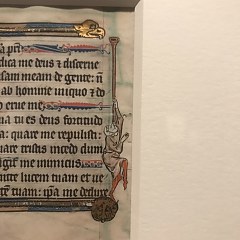 dica me deus et discerne
sam meam de gente: n
ab homine iniquo et do
erue me
na tu es deus fortitud
a: quare me repulisti
quare tristis incedo dum
ligit me inimicus
tte lucem tuam et ue
tem tuam: ipsa me dedux